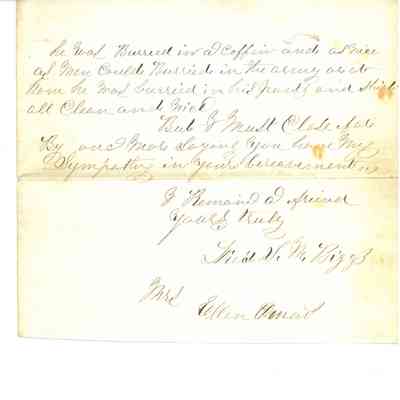 he was Burried in a Coffin and as nice
as Men Could Burried in the army or at
Home he was burried in his pants and Shirt
all Clean and Nice
But I Must Close for
By one More Saying you have My
Sympathy in your bereavement
I Remain a friend
yours truly
S. M. Biggs
Mrs
Ellen